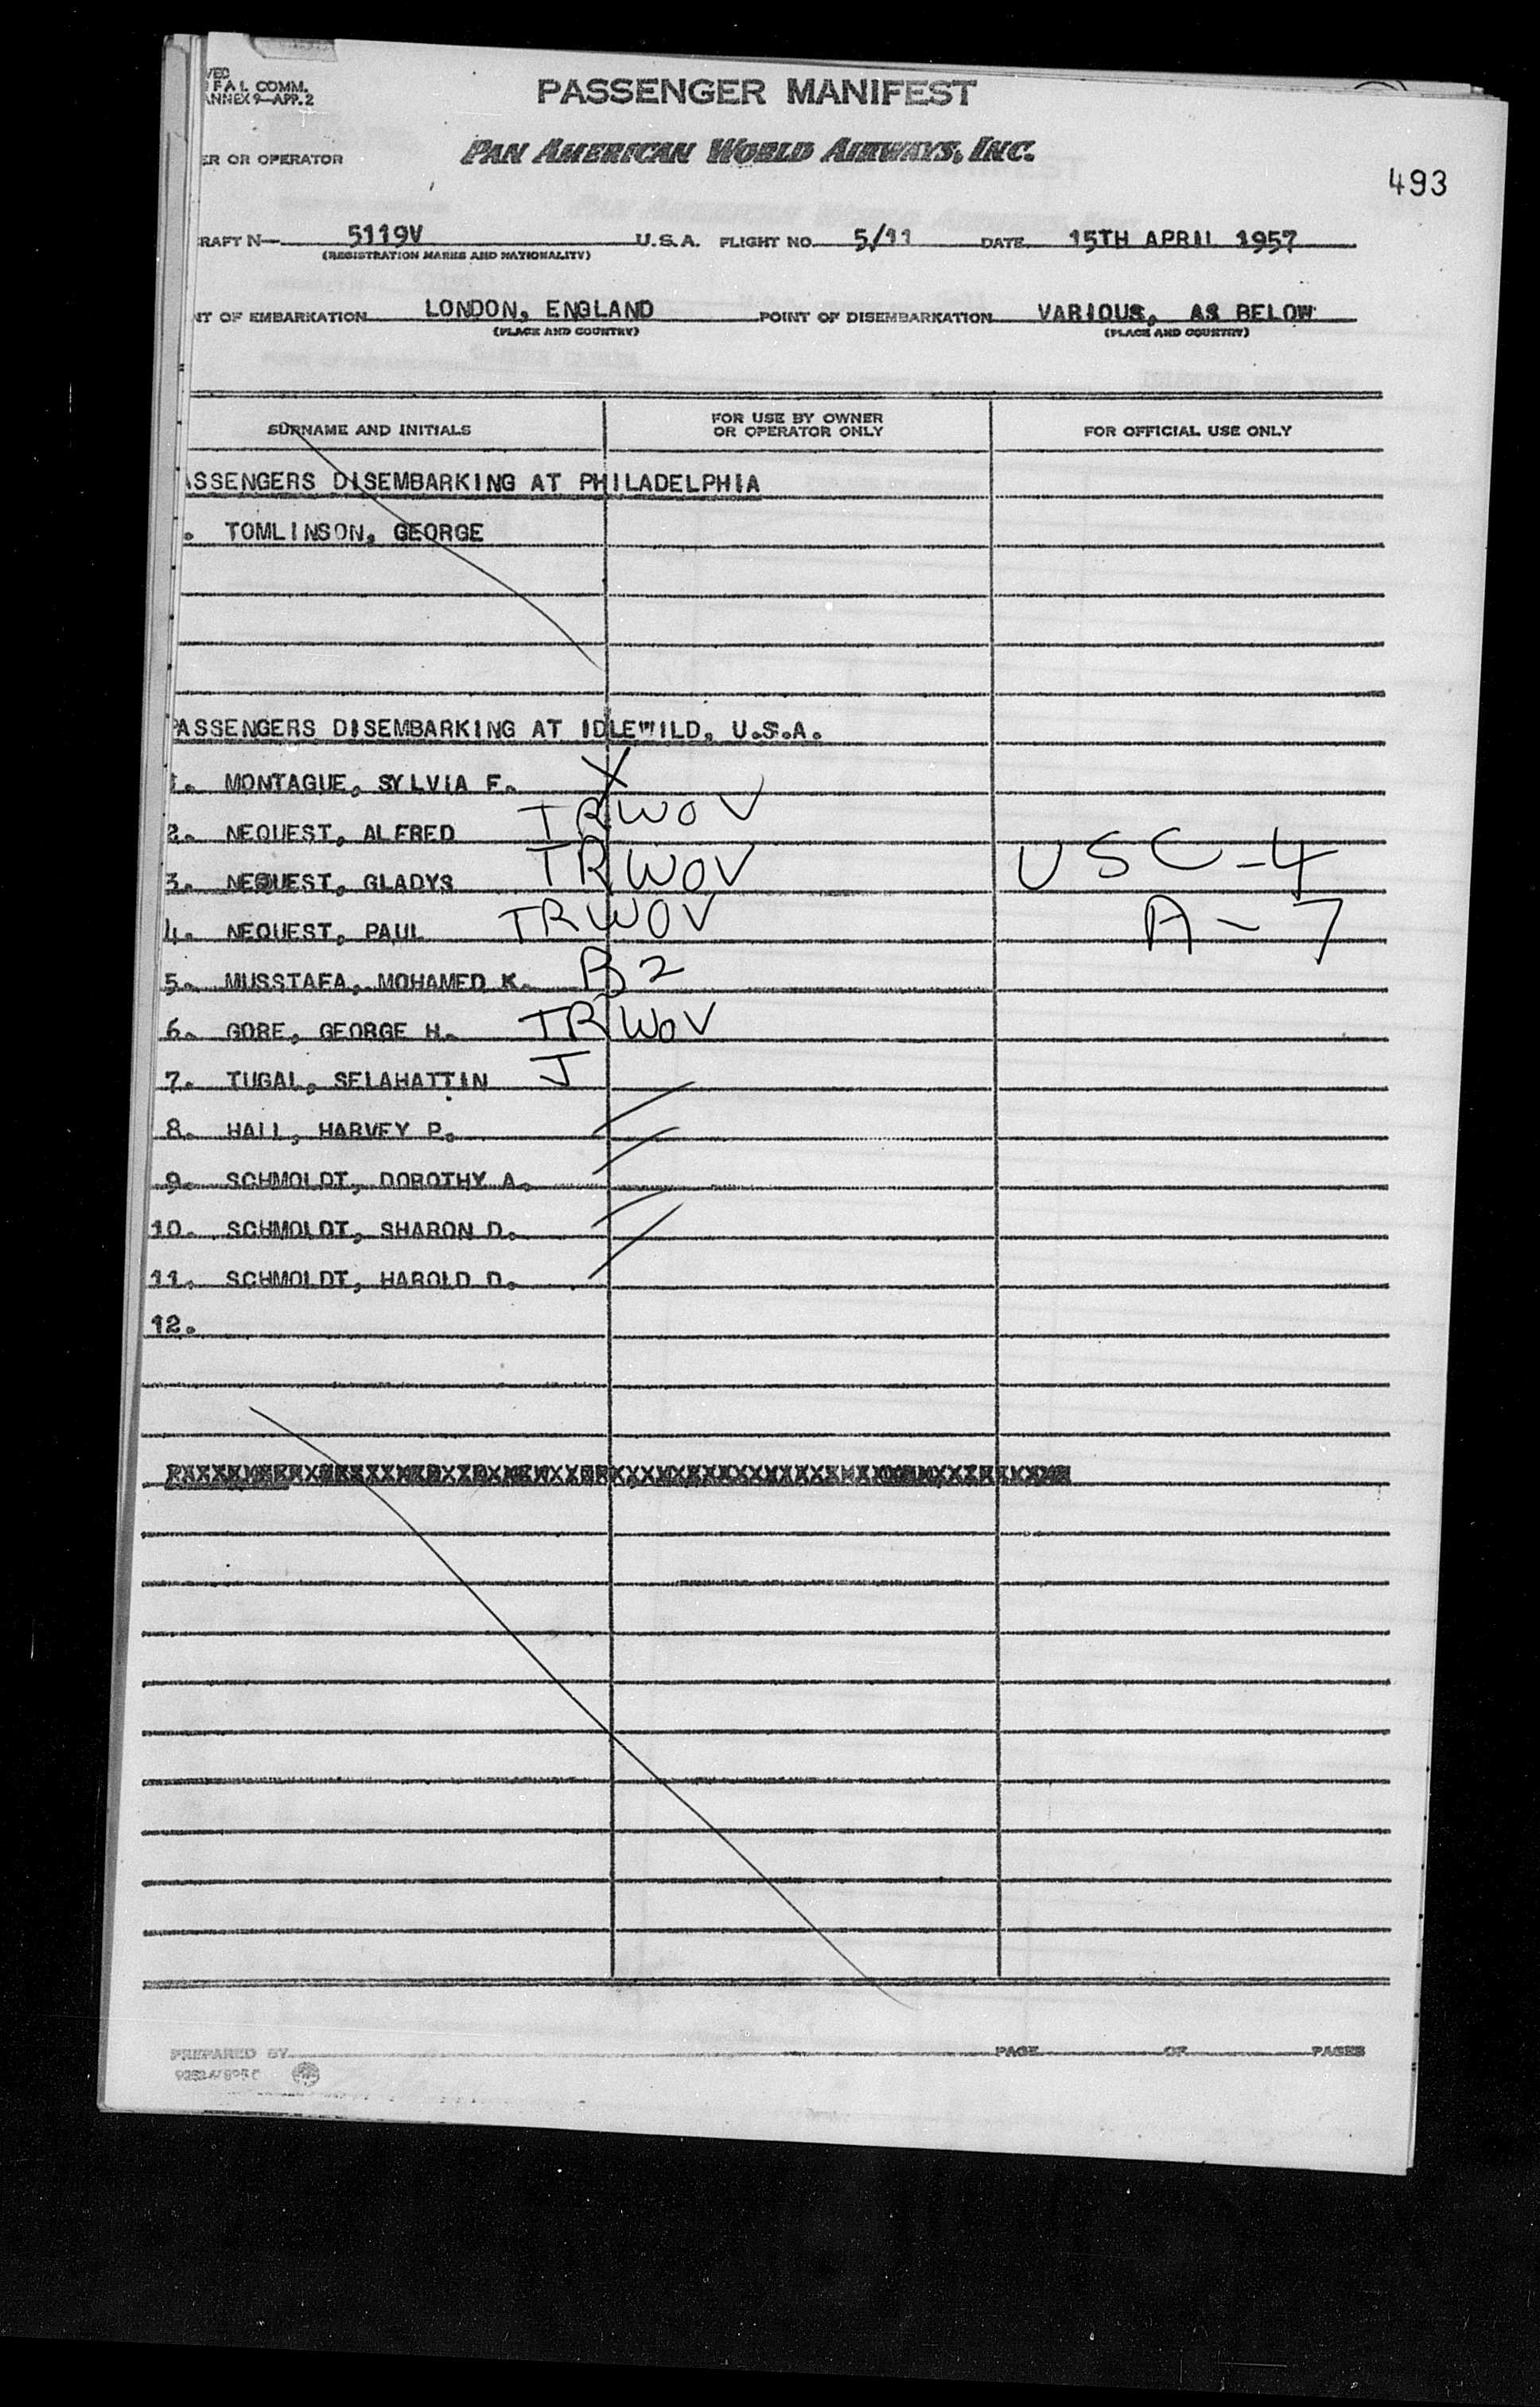 VED
FAL COMM.
ANNEX 9—APP. 2
PASSENGER MANIFEST
ER OR OPERATOR PAN AMERICAN WORLD AIRWAYS, INC.
493
RAFT N— 5119V U.S.A. FLIGHT NO. 5/11 DATE 15TH APRIL 1957
(REGISTRATION MARKS AND NATIONALITY)
NT OF EMBARKATION LONDON, ENGLAND POINT OF DISEMBARKATION VARIOUS, AS BELOW
(PLACE AND COUNTRY) (PLACE AND COUNTRY)
SURNAME AND INITIALS FOR USE BY OWNER OR OPERATOR ONLY FOR OFFICIAL USE ONLY
ASSENGERS DISEMBARKING AT PHILADELPHIA
. TOMLINSON, GEORGE
PASSENGERS DISEMBARKING AT IDLEWILD, U.S.A.
1. MONTAGUE, SYLVIA F. X
2. NEQUEST, ALFRED TRWOV
3. NEQUEST, GLADYS TRWOV USC-4
4. NEQUEST, PAUL TRWOV A-7
5. MUSSTAFA, MOHAMED K. B2
6. GORE, GEORGE H. TRWOV
7. TUGAL, SELAHATTIN J
8. HALL, HARVEY P.
9. SCHMOLDT, DOROTHY A.
10. SCHMOLDT, SHARON D.
11. SCHMOLDT, HAROLD D.
12.
PREPARED BY PAGE OF PAGES